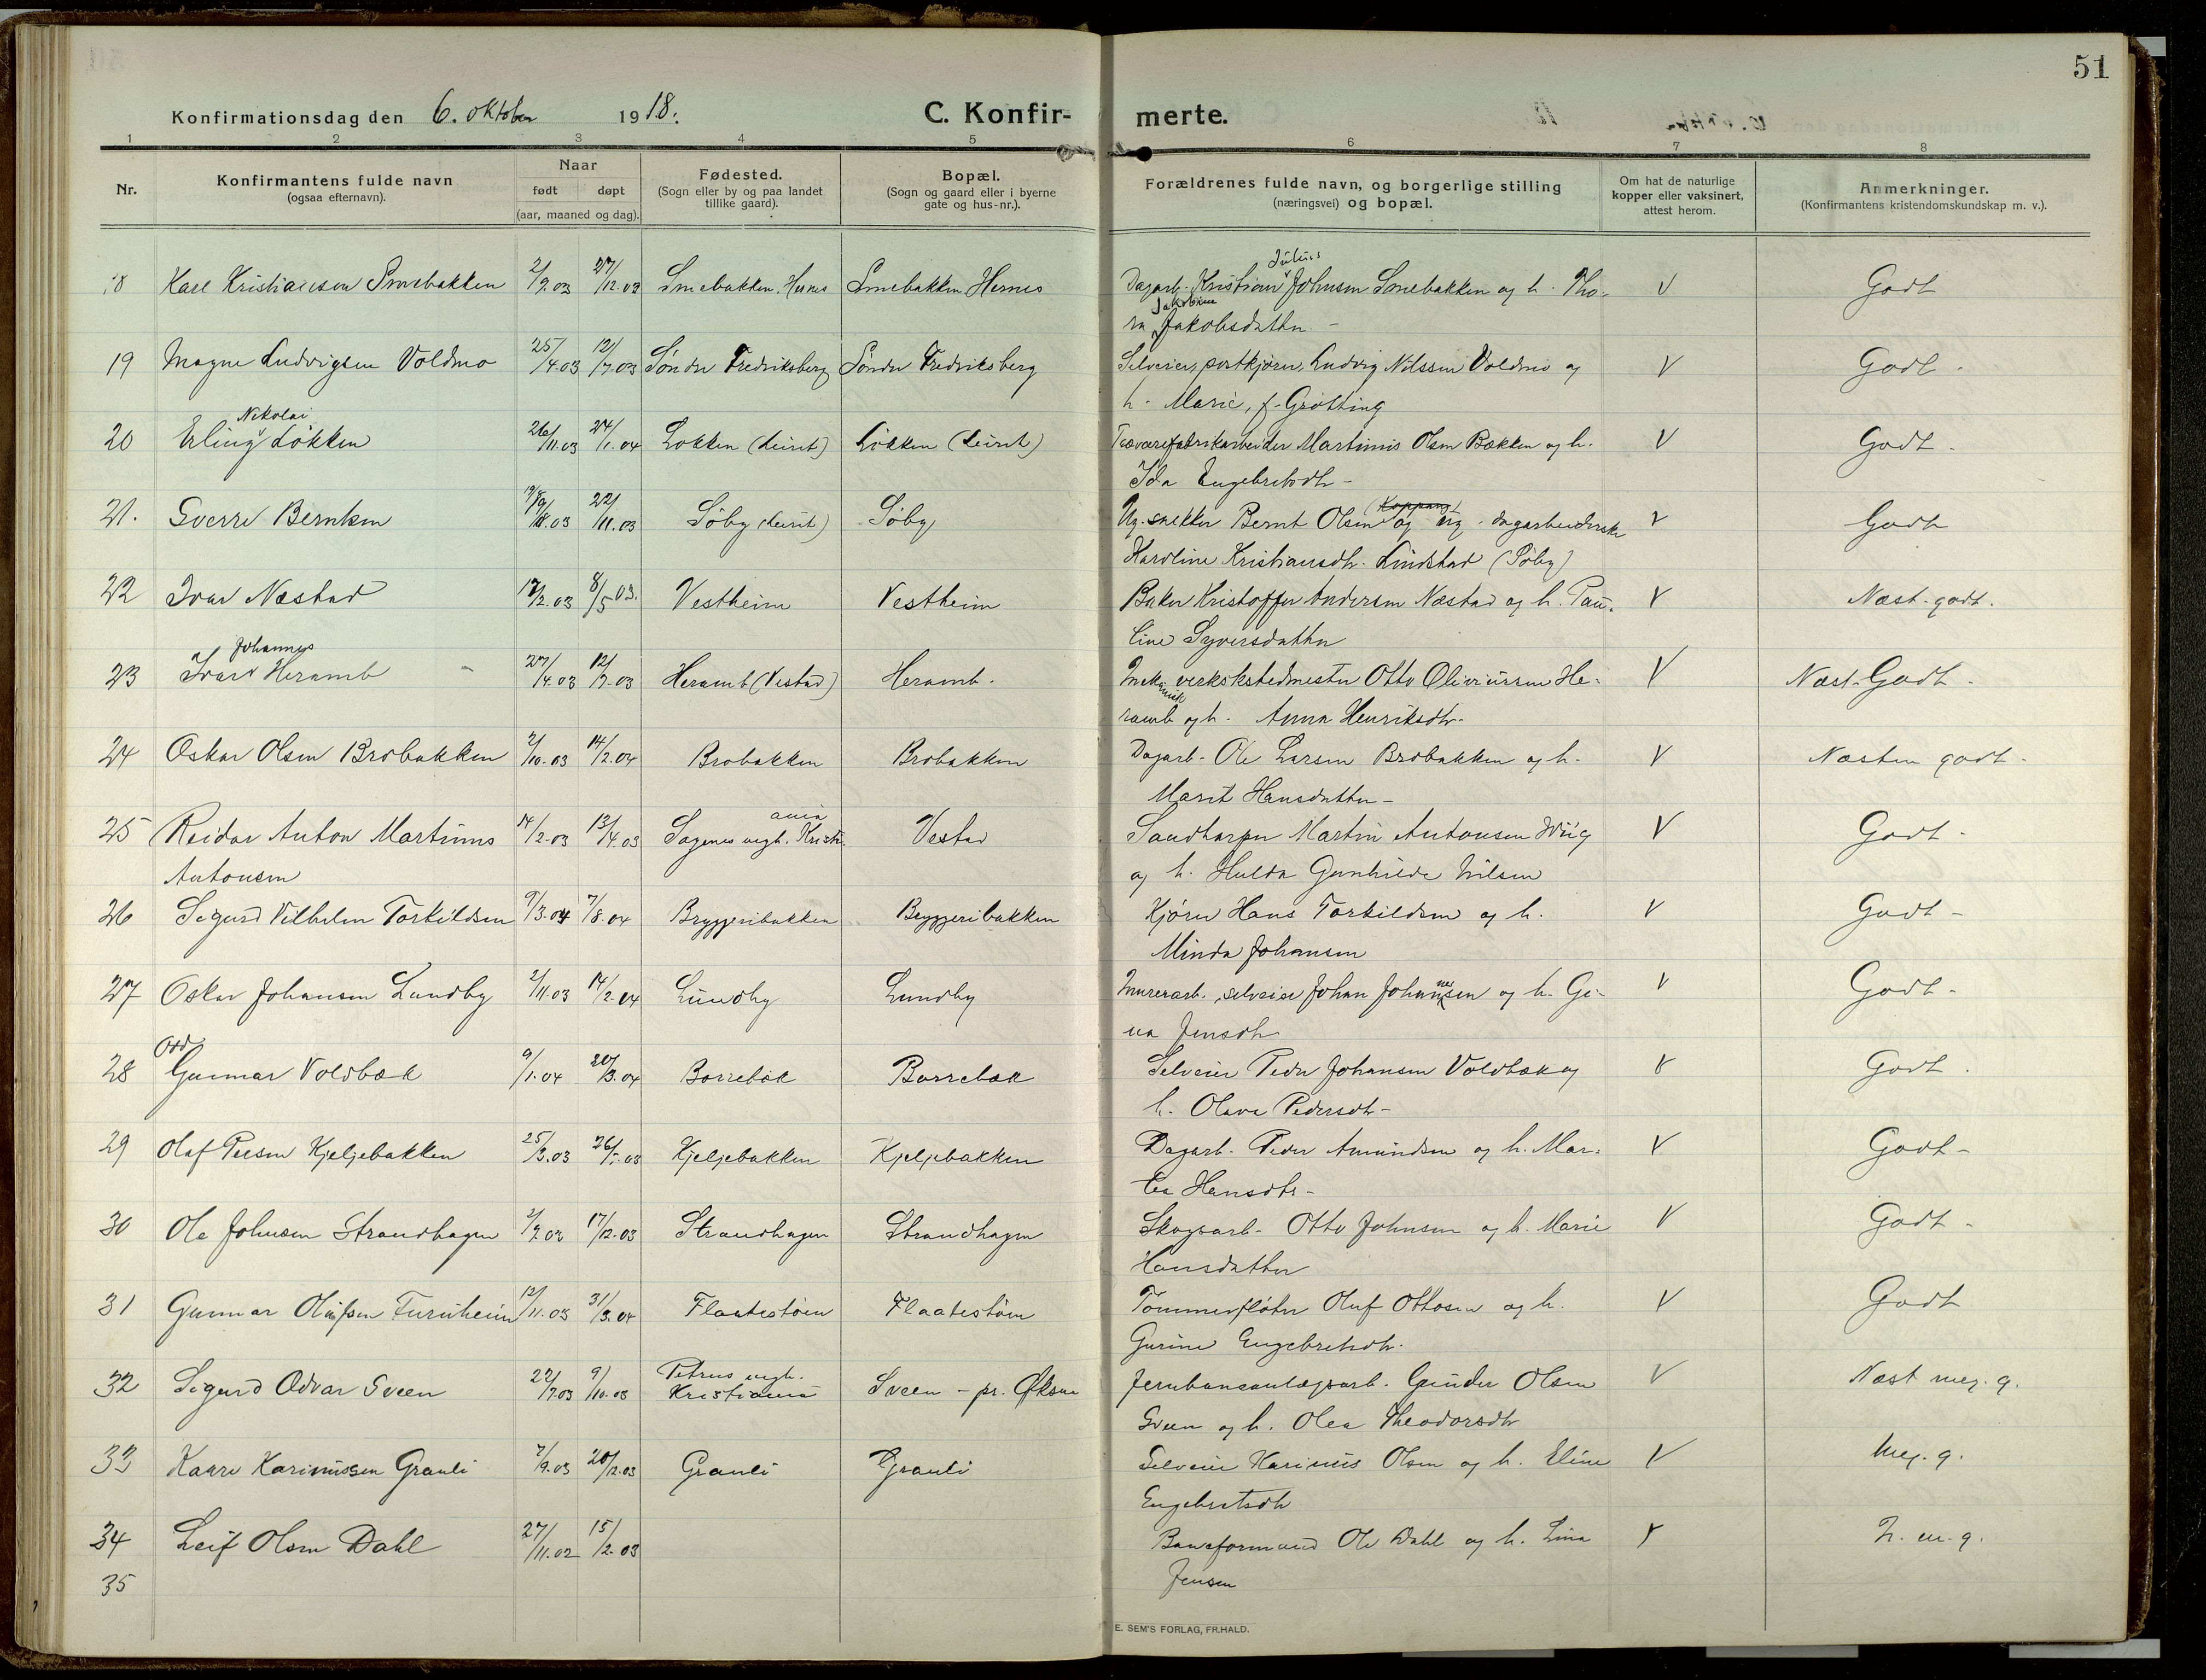 51
Konfirmationsdag den 6. oktober 1918. C. Konfir- merte.
1 2 3 4 5 6 7 8
Nr. Konfirmantens fulde navn (ogsaa efternavn). Naar født døpt (aar, maaned og dag). Fødested. (Sogn eller by og paa landet tillike gaard). Bopæl. (Sogn og gaard eller i byerne gate og hus-nr.). Forældrenes fulde navn, og borgerlige stilling (næringsvei) og bopæl. Om hat de naturlige kopper eller vaksinert, attest herom. Anmerkninger. (Konfirmantens kristendomskundskap m. v.).
18 Karl Kristiansen Smebakken 2/9.03 27/12.03 Smebakken, Hernes Smebakken Hernes Dagarb. Kristian Julius Johnsen Smebakken og h. Tho- V Godt
ra Jakobine Jakobsdatter -
19 Magne Ludvigsen Voldmo 25/4.03 12/7.03 Søndre Fredriksberg Søndre Fredriksberg Selveier, postkjører, Ludvig Nilssen Voldmo og V Godt -
h. Marie, f. Grøtting
20 Erling Nikolai Løkken 26/11.03 24/1.04 Løkken (Leiret) Løkken (Leiret) Trævarefabrikarbeider Martinius Olsen Bækken og h. V Godt -
Ida Engebretsdtr -
21. Sverre Berntsen 22/11.03 Søby (Leiret) Søby Ug. snekker Bernt Olsen (Koppang) og ug. dagarbeiderske V Godt
Karoline Kristiansdtr. Lindstad (Søby)
22 Ivar Næstad 17/2.03 8/5 03. Vestheim Vestheim Baker Kristoffer Andersen Næstad og h. Pau- V Næst. godt.
line Syversdatter
23 Ivar Johannes Heramb 27/4.03 12/7.03 Heramb (Vestad) Heramb. Mekanisk verkstedmester Otto Oliviussen He- V Næst. Godt -
ramb og h. Anna Henriksdtr.
24 Oskar Olsen Brobakken 2/10.03 14/2.04 Brobakken Brobakken Dagarb. Ole Larsen Brobakken og h. V Næsten godt -
Marit Hansdatter -
25 Reidar Anton Martinus 14/2.03 13/4.03 Sagenes mgh. Kristiania Vestad Sandtarper Martin Antonsen Wiig V Godt -
Antonsen og h. Hulda Gunhilde Nilsen
26 Sigurd Vilhelm Torkildsen 9/3.04 7/8.04 Bryggeribakken Bryggeribakken Kjører Hans Torkildsen og h. V Godt -
Minda Johansen
27 Oskar Johansen Lundby 2/11.03 14/2.04 Lundby Lundby Murerarb., selveier Johan Johannesen og h. Gi- V Godt -
na Jensdtr
28 Odd Gunnar Voldbæk 9/1.04 20/3.04 Borrebæk Borrebæk Selveier Peder Johansen Voldbæk og V Godt.
h. Olava Pedersdtr -
29 Olaf Peersen Kjeljebakken 25/3.03 Kjeljebakken Kjeljebakken Dagarb. Peder Amundsen og h. Mar- V Godt -
tea Hansdtr -
30 Ole Johnsen Strandhagen 2/9.03 17/12.03 Strandhagen Strandhagen Skogsarb. Otto Johnsen og h. Marie V Godt -
Hansdatter
31 Gunnar Olufsen Furuheim 12/11.03 31/3.04 Flaatestøen Flaatestøen Tømmerfløter Oluf Ottosen og h. V Godt
Gurine Engebretsdtr.
32 Sigurd Odvar Sveen 22/7.03 9/10.03 Petrus mgh. Kristiania Sveen - pr. Øksna Jernbaneanlægsarb. Gunder Olsen V Næst meg. g.
Sveen og h. Olea Theodorsdtr
33 Kaare Karinussen Granli 7/9.03 20/12.03 Granli Granli Selveier Karinus Olsen og h. Eline V Meg. g.
Engebretsdtr
34 Leif Olsen Dahl 27/11.02 15/2.03 Baneformand Ole Dahl og h. Lina V N. m. g.
Jensen
35
E. SEM'S FORLAG, FR.HALD.